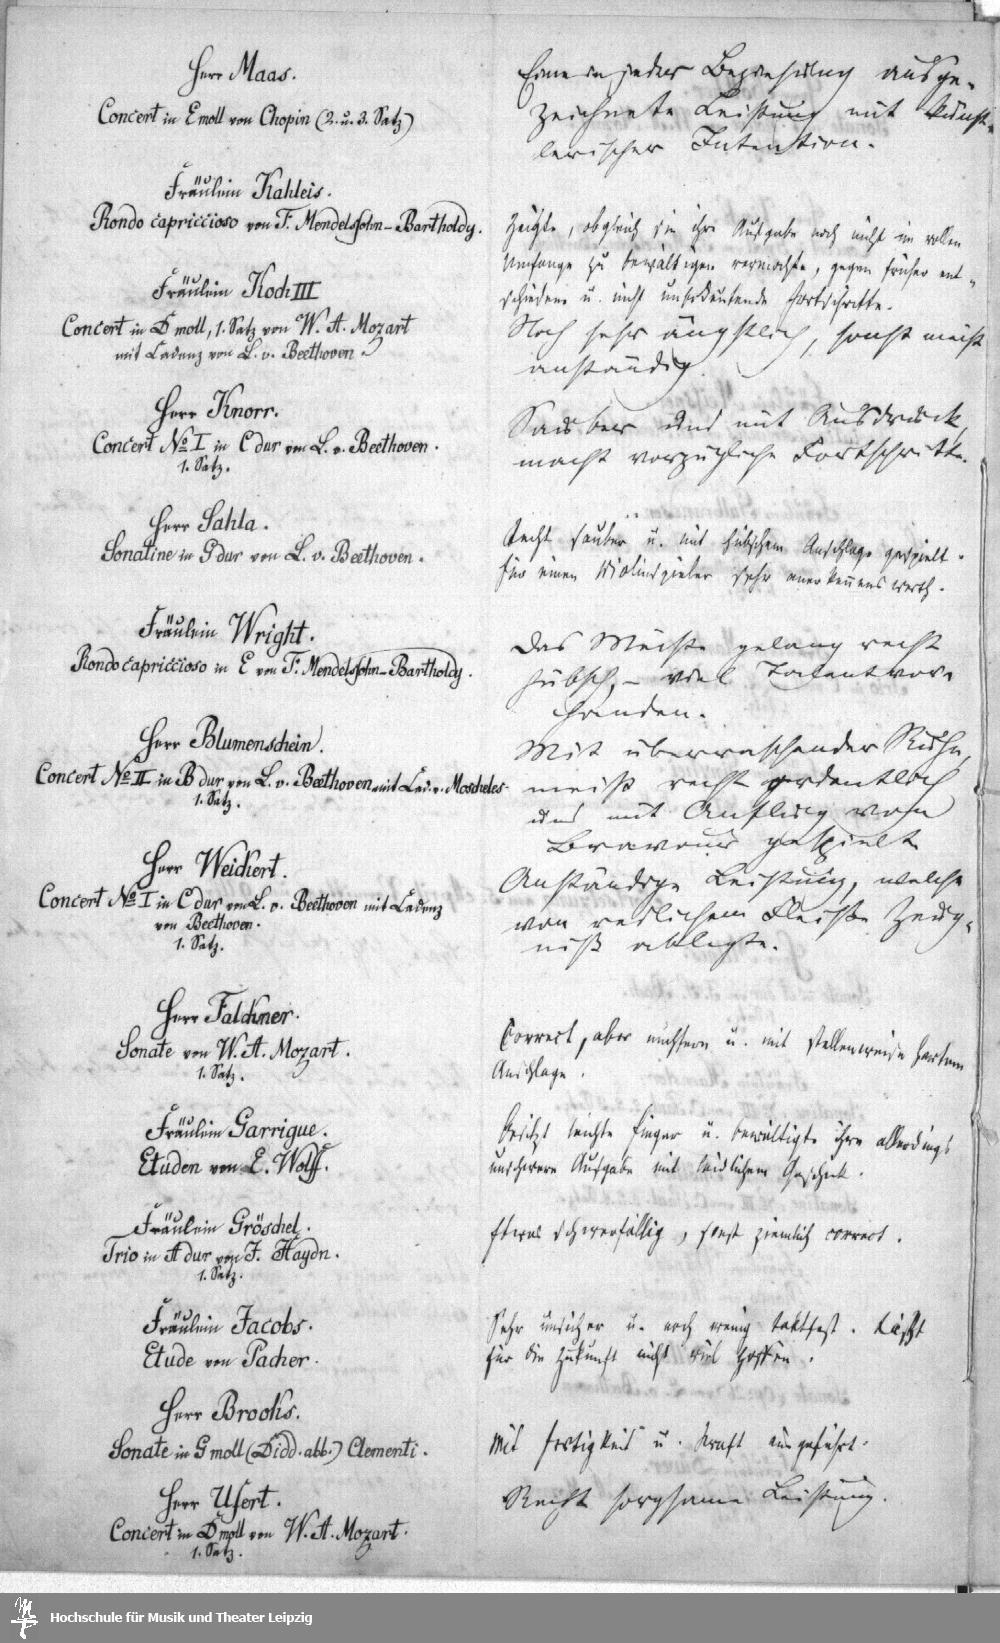 Herr Maas.
Concert in Emoll von Chopin (2. u. 3. Satz)
Eine in jeder Beziehung ausge-
zeichnete Leistung mit künst-
lerischer Intention.
Fräulein Kahleis.
Rondo capriccioso von F. Mendelssohn-Bartholdy.
Zeigte, obgleich sie ihre Aufgabe noch nicht im vollen
Umfange zu bewältigen vermochte, gegen früher ent-
schiedene u. nicht unbedeutende Fortschritte.
Fräulein Koch III
Concert in D moll, 1. Satz von W. A. Mozart
mit Cadenz von L. v. Beethoven
Noch sehr ängstlich, sonst meist
anständig.
Herr Knorr.
Concert No I in C dur von L. v. Beethoven.
1. Satz.
Sauber und mit Ausdruck,
macht vorzügliche Fortschritte.
Herr Sahla.
Sonatine in G dur von L. v. Beethoven.
Recht sauber u. mit hübschem Anschlage gespielt.
Für einen Violinspieler sehr anerkennenswerth.
Fräulein Wright.
Rondo capriccioso in E von F. Mendelssohn-Bartholdy.
Das Meiste gelang recht
hübsch, - viel Talent vor-
handen.
Herr Blumenschein.
Concert No II in B dur von L. v. Beethoven mit Cad. v. Moscheles.
1. Satz.
Mit überraschender Ruhe,
meist recht ordentlich
und mit Anflug von
Bravour gespielt
Herr Weickert.
Concert No I in C dur von L. v. Beethoven mit Cadenz
von Beethoven.
1. Satz.
Anständige Leistung, welche
von redlichem Fleiße Zeug-
niß ablegte.
Herr Falckner.
Sonate von W. A. Mozart.
1. Satz.
Correct, aber nüchtern u. mit stellenweise hartem
Anschlage.
Fräulein Garrigue.
Etuden von E. Wolff.
Besitzt leichte Finger u. bewältigte ihre allerdings
unschwere Aufgabe mit leidlichem Geschick.
Fräulein Gröschel.
Trio in A dur von J. Haydn.
1. Satz.
Etwas schwerfällig, sonst ziemlich correct.
Fräulein Jacobs.
Etude von Pacher.
Sehr unsicher u. noch wenig taktfest. Läßt
für die Zukunft nicht viel hoffen.
Herr Brooks.
Sonate in G moll (Didd. abb.) Clementi.
Mit Fertigkeit u. Kraft ausgeführt.
Herr Ufert.
Concert in D moll von W. A. Mozart.
1. Satz.
Recht sorgsame Leistung.
Hochschule für Musik und Theater Leipzig